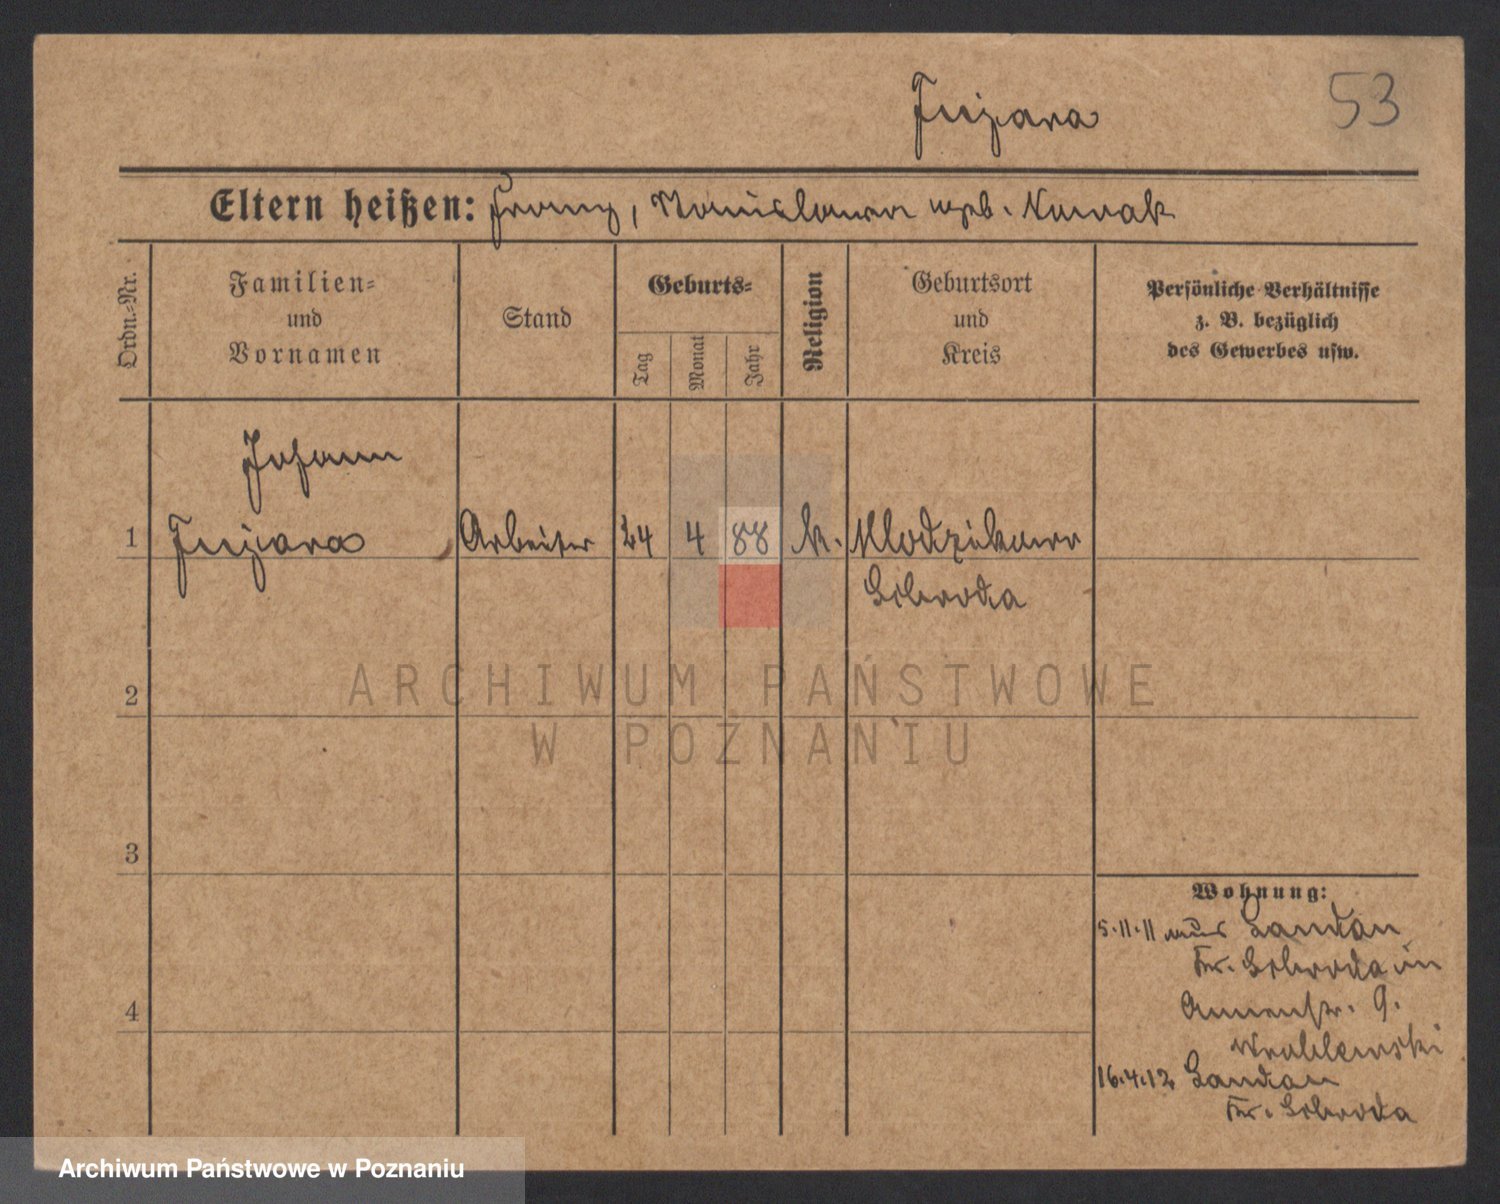 Fujzara
53
Eltern heißen: Franz, Stanislawa geb. Nowak
Ordn.-Nr.
Familien- und Vornamen
Stand
Geburts-
Tag
Monat
Jahr
Religion
Geburtsort und Kreis
Persönliche Verhältnisse z. B. bezüglich des Gewerbes usw.
Johann
1 Arbeiter 24 4 88 k. Mlodzikowo
Schroda
2
3
4
Wohnung:
5.11.11 aus
Kr. Schroda in
Annenstr. 9.
Wroblewski
16.4.12
Kr. Schroda
ARCHIWUM PAŃSTWOWE
W POZNANIU
Archiwum Państwowe w Poznaniu